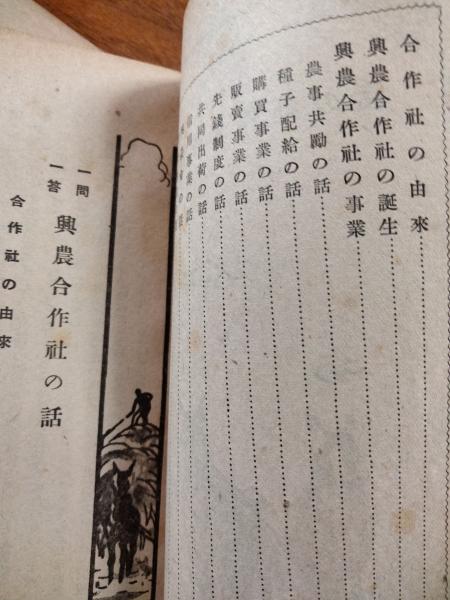 合作社の由來
興農合作社の誕生
興農合作社の事業
農事共勵の話
種子配給の話
購買事業の話
販賣事業の話
先錢制度の話
共同出荷の話
事業の話
の話
一問
一答
興農合作社の話
合作社の由來